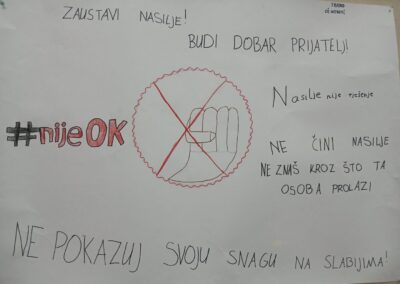 ZAUSTAVI NASILJE!
BUDI DOBAR PRIJATELJ!
#nijeOK
Nasilje nije rješenje
NE ČINI NASILJE
NE ZNAŠ KROZ ŠTO TA
OSOBA PROLAZI
NE POKAZUJ SVOJU SNAGU NA SLABIJIMA!